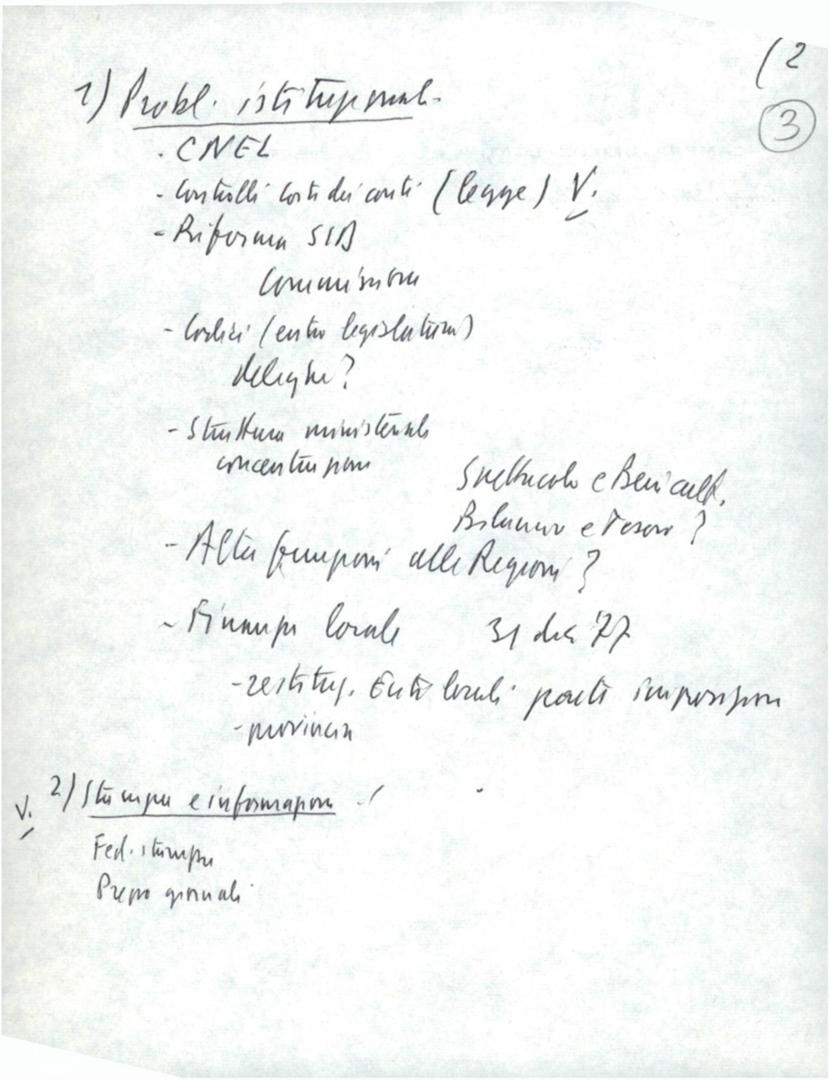 (2
3
1) Probl. istituzionali
. CNEL
- Controlli Corte dei conti (legge) V.
- Riforma SIA
Commissione
- Codici (entro legislatura)
deleghe?
- Struttura ministeriale
concentrazione
Spettacolo e Beni cult.
Bilancio e Tesoro?
- Altre funzioni alle Regioni?
- Finanza locale 31 dic '77
- restituz. Enti locali potestà imposizione
- provincia
V. 2) Stampa e informazione
Fed. stampa
Prezzo giornali